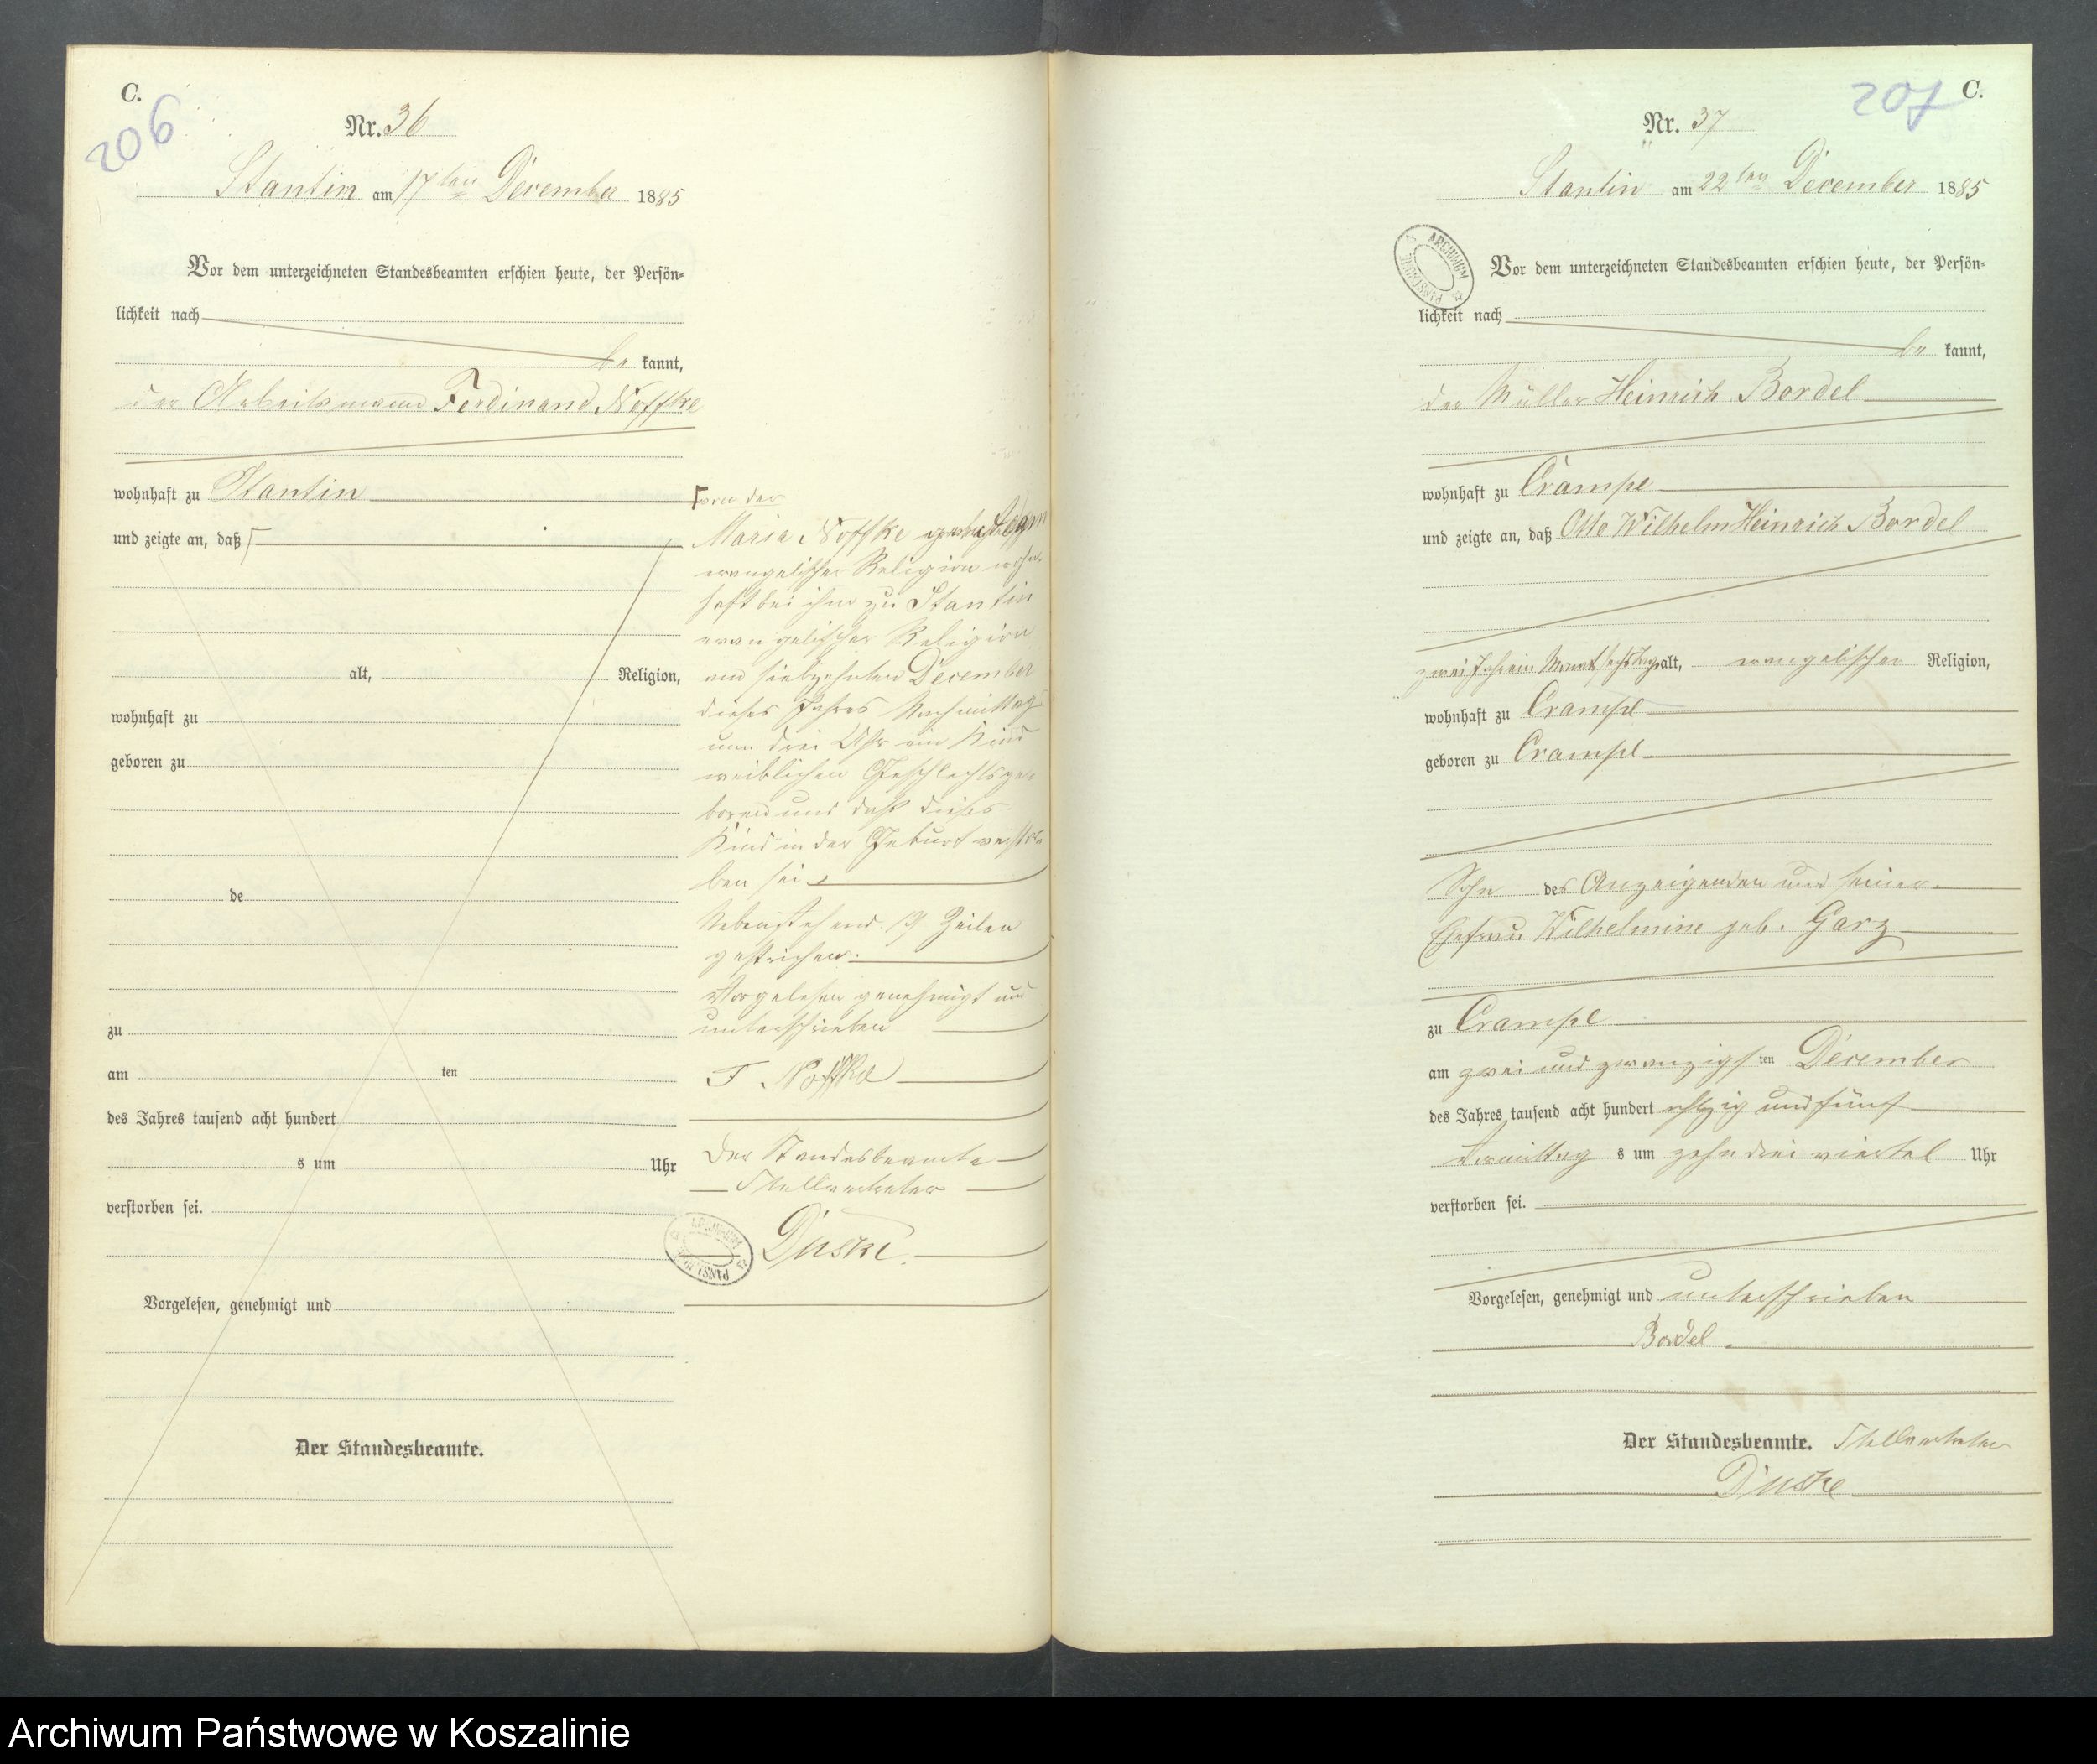 C.
206
Nr. 36
Stantin am 17ten December 1885
Vor dem unterzeichneten Standesbeamten erschien heute, der Persön-
lichkeit nach
be kannt,
der Arbeitsmann Ferdinand Noffke
wohnhaft zu Stantin
und zeigte an, daß
alt, Religion,
wohnhaft zu
geboren zu
de
zu
am ten
des Jahres tausend acht hundert
s um Uhr
verstorben sei.
Vorgelesen, genehmigt und
Der Standesbeamte.
von der
Maria Noffke
evangelischer Religion wohn-
haft bei ihm zu Stantin
evangelischer Religion
am siebzehnten December
dieses Jahres Nachmittags
um drei Uhr ein Kind
weiblichen Geschlechts ge-
boren und daß dieses
Kind in der Geburt verstor-
ben sei.
Nebenstehend 19 Zeilen
gestrichen.
Vorgelesen genehmigt und
unterschrieben
F Noffke
Der Standesbeamte
Stellvertreter
Duske.
ARCHIWUM PAŃSTWOWE
207
C.
Nr. 37
Stantin am 22ten December 1885
ARCHIWUM PAŃSTWOWE
Vor dem unterzeichneten Standesbeamten erschien heute, der Persön-
lichkeit nach
be kannt,
der Müller Heinrich Bordel
wohnhaft zu Crampe
und zeigte an, daß Otto Wilhelm Heinrich Bordel
zwei Jahr ein Monat sechs Tage alt, evangelischer Religion,
wohnhaft zu Crampe
geboren zu Crampe
Sohn des Anzeigenden und seiner
Ehefrau Wilhelmine geb. Garz
zu Crampe
am zwei und zwanzigsten December
des Jahres tausend acht hundert achtzig und fünf
Vormittag s um zehn drei viertel Uhr
verstorben sei.
Vorgelesen, genehmigt und unterschrieben
Bordel.
Der Standesbeamte. Stellvertreter
Duske
Archiwum Państwowe w Koszalinie